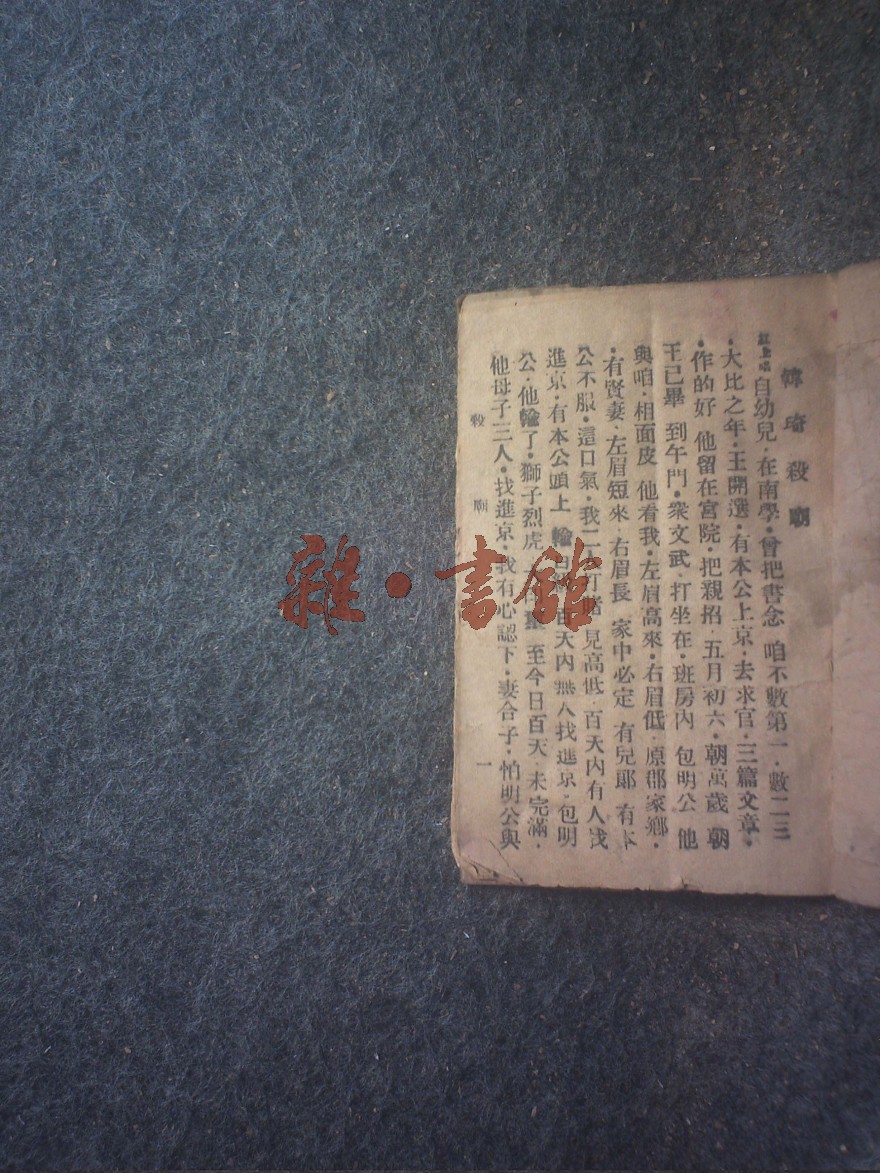 韓琦殺廟
紅上唱自幼兒·在南學·曾把書念 咱不數第一·數二三
·大比之年·王開選·有本公上京·去求官·三篇文章·
·作的好 他留在宮院·把親招·五月初六·朝萬歲 朝
王已畢 到午門·衆文武·打坐在·班房內 包明公 他
與咱·相面皮 他看我·左眉高來·右眉低·原郡家鄉·
·有賢妻·左眉短來·右眉長 家中必定 有兒郎 有本
公不服·這口氣·我二人打賭 見高低·百天內有人找
進京·有本公頭上 輸 百天內 無人找進京·包明
公·他輸了·獅子烈虎 至今日百天·未完滿·
他母子三人·找進京·我有心認下·妻合子·怕明公與
殺廟 一
雜·書館